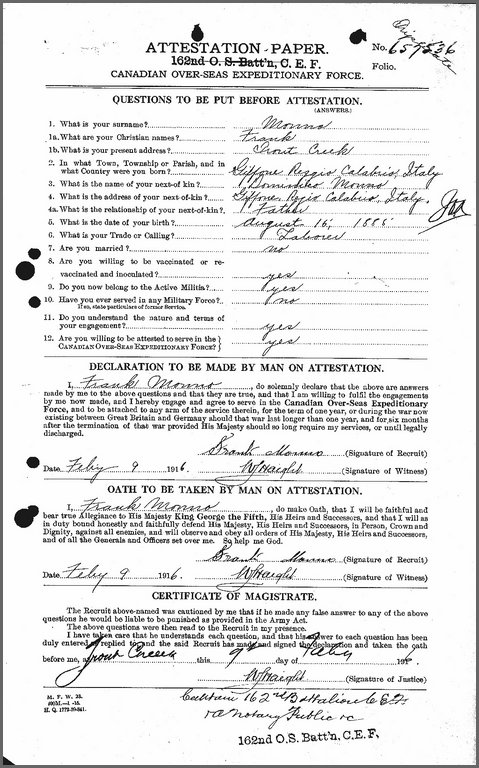 Original
ATTESTATION PAPER. No. 657536
162nd O. S. Batt'n, C. E. F. Folio.
CANADIAN OVER-SEAS EXPEDITIONARY FORCE.
QUESTIONS TO BE PUT BEFORE ATTESTATION.
(ANSWERS.)
1. What is your surname? Monno
1a. What are your Christian names? Frank
1b. What is your present address? Trout Creek
2. In what Town, Township or Parish, and in
what Country were you born? Giffone Reggio Calabrio, Italy
3. What is the name of your next-of-kin? Dominiko Monno
4. What is the address of your next-of-kin? Giffone, Regio Calabrio, Italy,
4a. What is the relationship of your next-of-kin? Father
5. What is the date of your birth? August 16, 1886
6. What is your Trade or Calling? Laborer
7. Are you married? no
8. Are you willing to be vaccinated or re-
vaccinated and inoculated? yes
9. Do you now belong to the Active Militia? yes
10. Have you ever served in any Military Force? no
If so, state particulars of former Service.
11. Do you understand the nature and terms of
your engagement? yes
12. Are you willing to be attested to serve in the
CANADIAN OVER-SEAS EXPEDITIONARY FORCE? yes
DECLARATION TO BE MADE BY MAN ON ATTESTATION.
I, Frank Monno, do solemnly declare that the above are answers
made by me to the above questions and that they are true, and that I am willing to fulfil the engagements
by me now made, and I hereby engage and agree to serve in the Canadian Over-Seas Expeditionary
Force, and to be attached to any arm of the service therein, for the term of one year, or during the war now
existing between Great Britain and Germany should that war last longer than one year, and for six months
after the termination of that war provided His Majesty should so long require my services, or until legally
discharged.
Frank Monno (Signature of Recruit)
Date Feby 9 1916. W Haight (Signature of Witness)
OATH TO BE TAKEN BY MAN ON ATTESTATION.
I, Frank Monno, do make Oath, that I will be faithful and
bear true Allegiance to His Majesty King George the Fifth, His Heirs and Successors, and that I will as
in duty bound honestly and faithfully defend His Majesty, His Heirs and Successors, in Person, Crown and
Dignity, against all enemies, and will observe and obey all orders of His Majesty, His Heirs and Successors,
and of all the Generals and Officers set over me. So help me God.
Frank Monno (Signature of Recruit)
Date Feby 9 1916 W Haight (Signature of Witness)
CERTIFICATE OF MAGISTRATE.
The Recruit above-named was cautioned by me that if he made any false answer to any of the above
questions he would be liable to be punished as provided in the Army Act.
The above questions were then read to the Recruit in my presence.
I have taken care that he understands each question, and that his answer to each question has been
duly entered as replied to and the said Recruit has made and signed the declaration and taken the oath
before me, at Trout Creek this 9th day of Feby 191
W Haight (Signature of Justice)
M. F. W. 23.
H. Q. 1772-39-841.
Captain 162nd Battalion C E F
a Notary Public &c
162nd O.S. Batt'n, C.E.F.